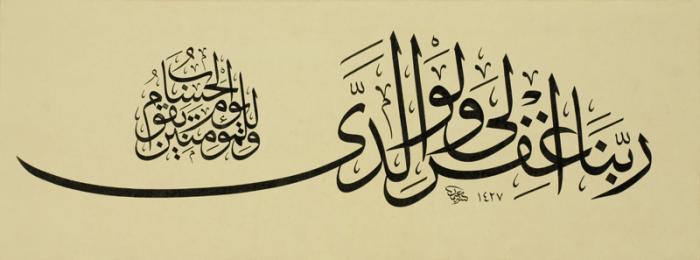 رَبَّنَا اغْفِرْ لِى وَلِوَالِدَىَّ
وللمؤمنين يوم يقوم الحساب
١٤٢٧